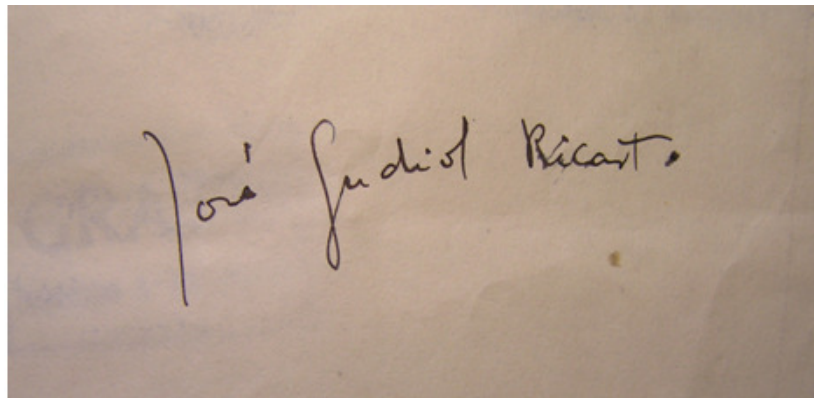 José Gudiol Ricart.